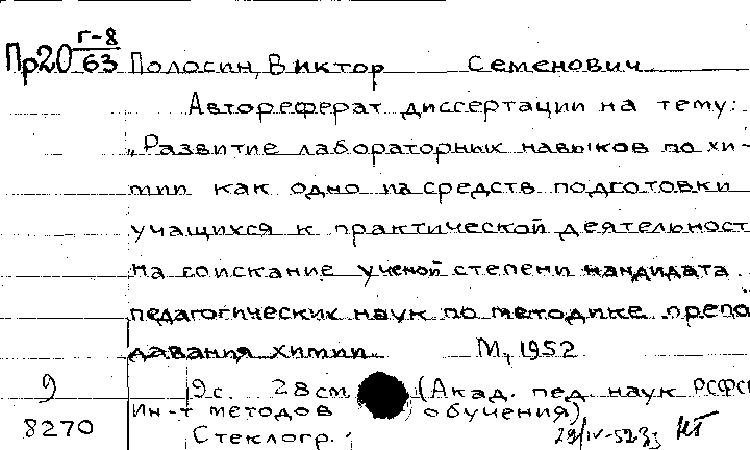 Пр20 Г-8/63 Полосин, Виктор Семенович
Автореферат диссертации на тему:
„Развитие лабораторных навыков по хи-
мии как одно из средств подготовки
учащихся к практической деятельност
на соискание ученой степени кандидата
педагогических наук по методике препо
давания химии М, 1952
9 19с. 28см (Акад. пед. наук РСФС
Ин-т методов обучения)
8270 Стеклогр.
29/IV-52г.